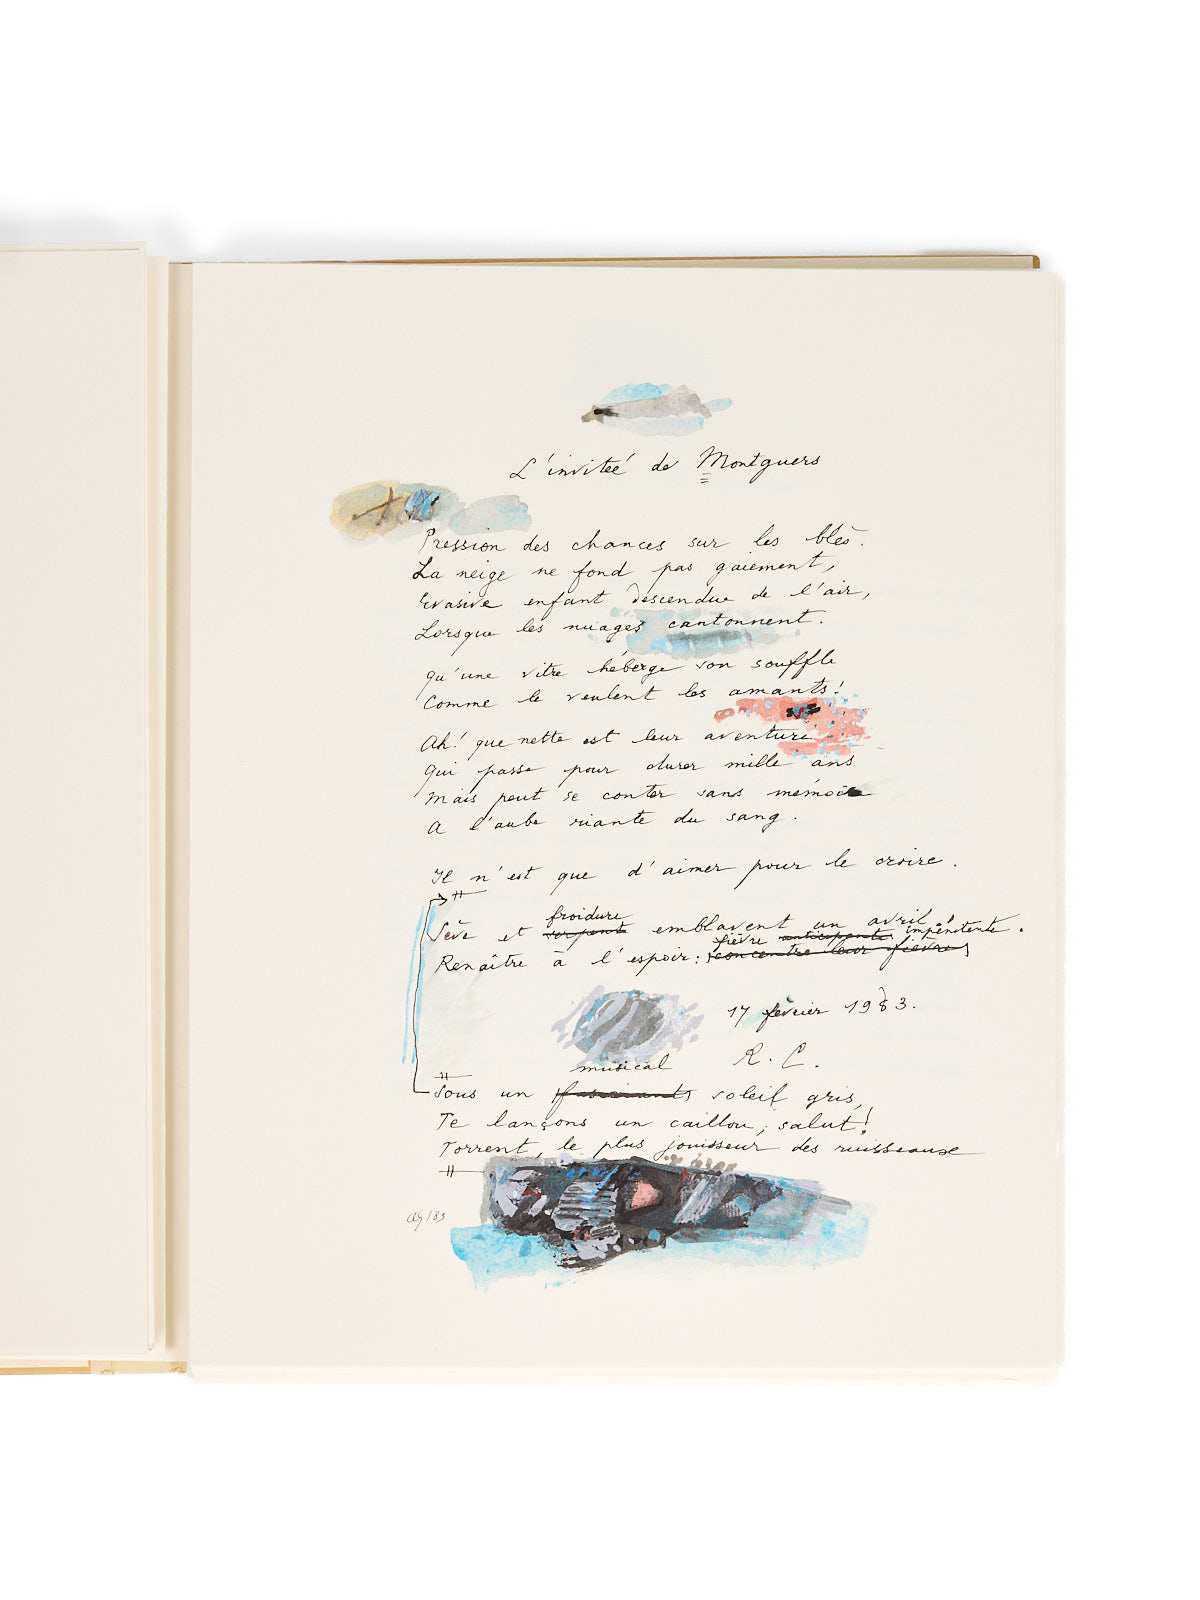 L'invitée de Montguers
Pression des chances sur les blés.
La neige ne fond pas gaiement,
Evasive enfant descendue de l'air,
Lorsque les nuages cantonnent.
Qu'une vitre héberge son souffle
Comme le veulent les amants!
Ah! que nette est leur aventure
Qui passe pour durer mille ans
Mais peut se conter sans mémoire
A l'aube riante du sang.
Il n'est que d'aimer pour le croire.
froidure
Sève et serpents emblavent un avril!
fièvre anticipante impénitente.
Renaître à l'espoir: concentre leur fièvre
17 février 1983.
R. C.
musical
Sous un fascinant soleil gris,
Te lançons un caillou, salut!
Torrent, le plus jouisseur des ruisseaux
/83